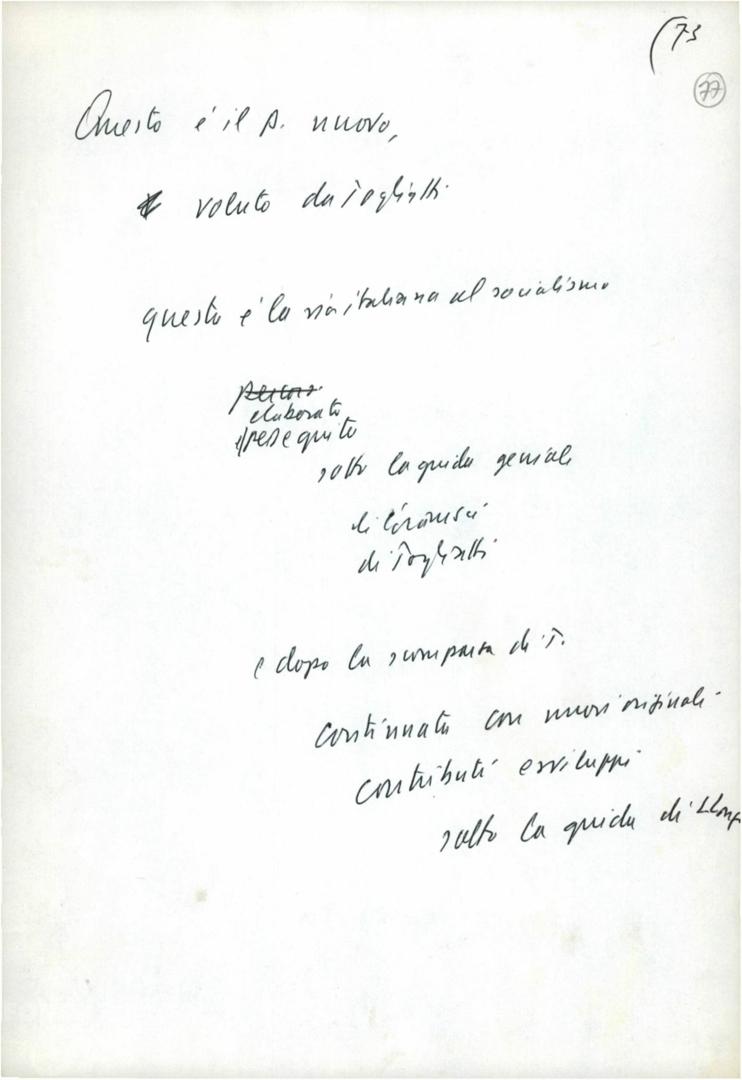 (73
77
Questo é il p. nuovo,
voluto da Togliatti
questa é la via italiana al socialismo
elaborata
perseguita
sotto la guida geniale
di Gramsci
di Togliatti
e dopo la scomparsa di T.
continuata con nuovi originali
contributi e sviluppi
sotto la guida di L Longo